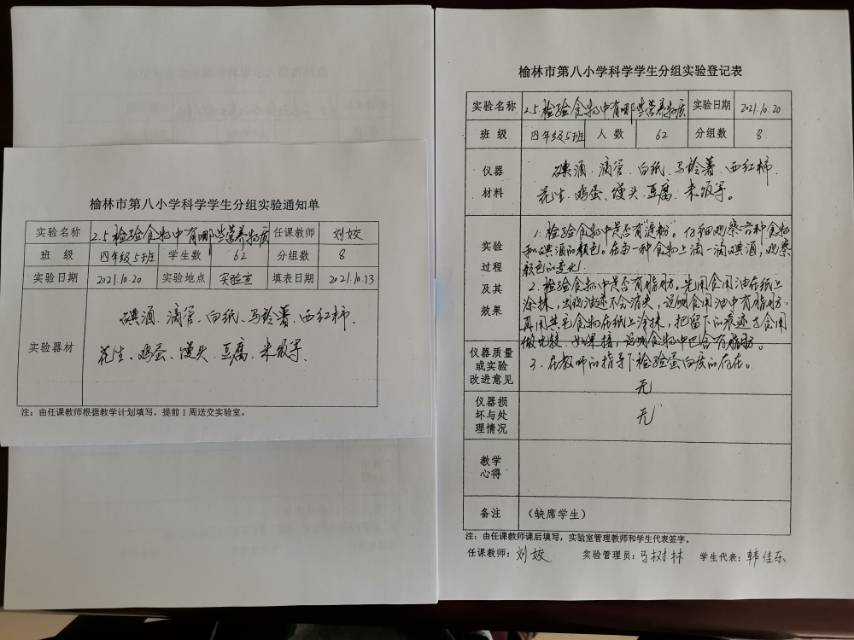 榆林市第八小学科学学生分组实验通知单
实验名称 2.5检验食物中有哪些营养物质 任课教师 刘姣
班 级 四年级5班 学生数 62 分组数 8
实验日期 2021.10.20 实验地点 实验室 填表日期 2021.10.13
实验器材 碘酒、滴管、白纸、马铃薯、西红柿、
花生、鸡蛋、馒头、豆腐、米饭等、
注：由任课教师根据教学计划填写，提前1周送交实验室。
榆林市第八小学科学学生分组实验登记表
实验名称 2.5.检验食物中有哪些营养物质 实验日期 2021.10.20
班 级 四年级5班 人 数 62 分组数 8
仪器
材料
碘酒、滴管、白纸、马铃薯、西红柿、
花生、鸡蛋、馒头、豆腐、米饭等。
实验
过程
及其
效果
1.检验食物中是否有"淀粉"。仔细观察各种食物
和碘酒的颜色。在每一种食物上滴一滴碘酒，观察
颜色的变化。
2.检验食物中是否有脂肪。先用食用油在纸上
涂抹，出现油迹不会消失，说明食用油中有脂肪，
再用其它食物在纸上涂抹，把留下的痕迹与食用
做比较，如果接，说明食物中也含有脂肪。
3.在教师的指导下检验蛋白质的存在。
仪器质量
或实验
改进意见
无
仪器损
坏与处
理情况
无
教学
心得
备注 （缺席学生）
注：由任课教师课后填写，实验室管理教师和学生代表签字。
任课教师：刘姣 实验管理员：马树林 学生代表：韩佳乐